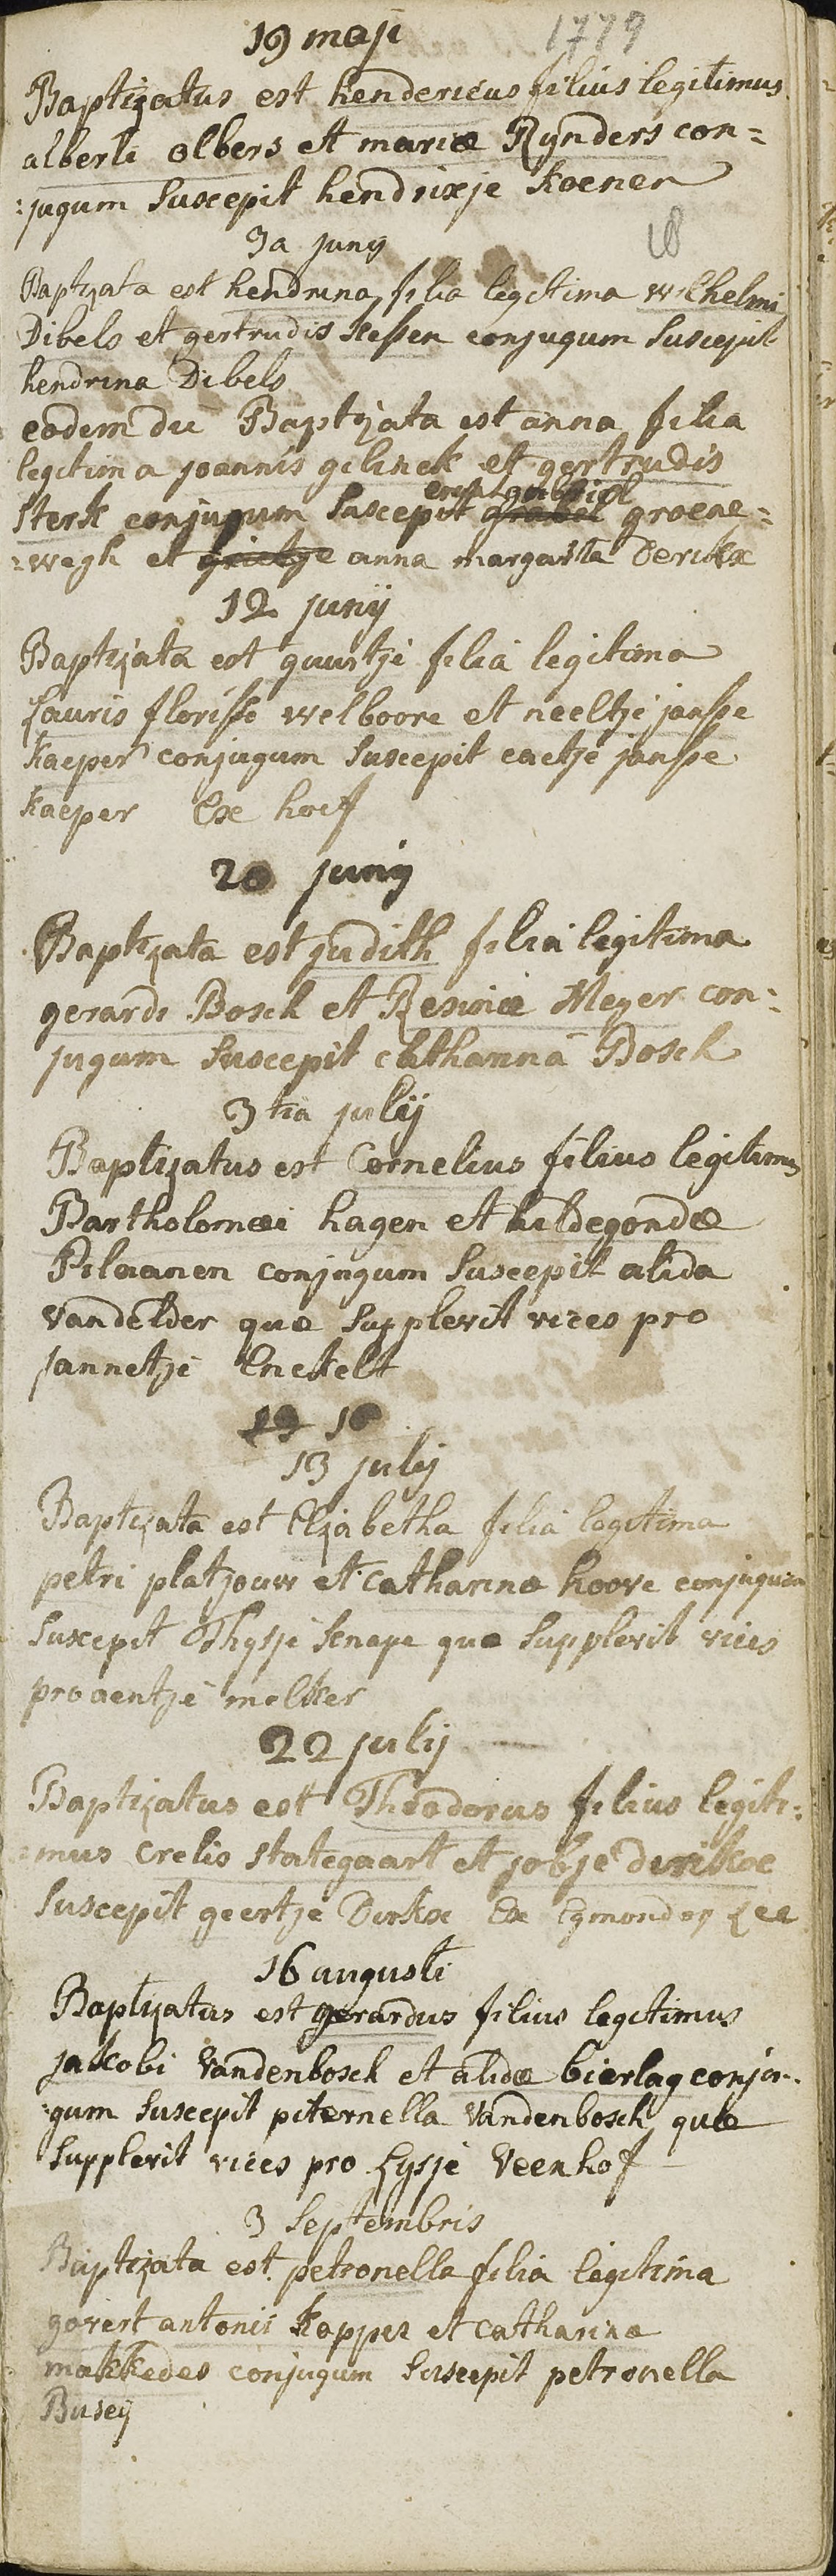 19 maji 1779
Baptizatus est hendericus filius legitimus
alberti olbers et mariæ Rynders con=
:jugum Suscepit hendrixje koenen
3a junij 18
Baptizata est hendrina filia legitima wilhelmi
Dibels et gertrudis keßen conjugum Suscepit
hendrina Dibels
eodem die Baptizata est anna filia
legitima joannis gelinek et gertrudis
gabriel
Sterk conjugum Suscepit groene=
=wegh et grietje anna margarita Derikx
12 junij
Baptizata est guurtje filia legitima
Lauris floriße welboore et neeltje janße
kaeper conjugum Suscepit eaetje janße
kaeper Ex hoef
20 junij
Baptizata est judith filia legitima
gerardi Bosch et Resinæ Meyer con=
jugum Suscepit chatharina Bosch
3 tia julij
Baptizatus est Cornelius filius legitimus
Bartholomæi hagen et hildegondæ
Pilaanen conjugum Suscepit alida
vandelder quæ Supplevit vices pro
jannetje Enekelt
13 julij
Baptizata est Elzabetha filia legitima
petri platzouw et catharinæ hoove conjugum
Suscepit Thysje Scnape quæ Supplevit vices
pro aentje molker
22 julij
Baptizatus est Theodorus filius legiti=
=mus crelis stategaart et jobje dirikse
Suscepit geertje Dirkse Ex Egmonder zee
16 augusti
Baptizatus est gerardus filius legitimus
jakobi vandenbosch et alidæ bierlag conju=
=gum Suscepit piternella vandenbosch quæ
Supplevit vices pro Lysje veenhof
3 Septembris
Baptizata est petronella filia legitima
govert antonii koppes et catharinæ
makkedes conjugum Suscepit petronella
Buseij